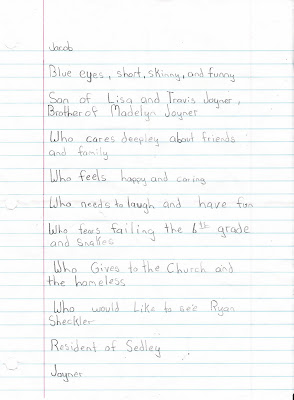 Jacob
Blue eyes, short, skinny, and funny
Son of Lisa and Travis Joyner,
Brother of Madelyn Joyner
Who cares deepley about friends
and family
Who feels happy and caring
Who needs to laugh and have fun
Who fears failing the 6th grade
and snakes
Who Gives to the Church and
the homeless
Who would Like to see Ryan
Sheckler
Resident of Sedley
Joyner